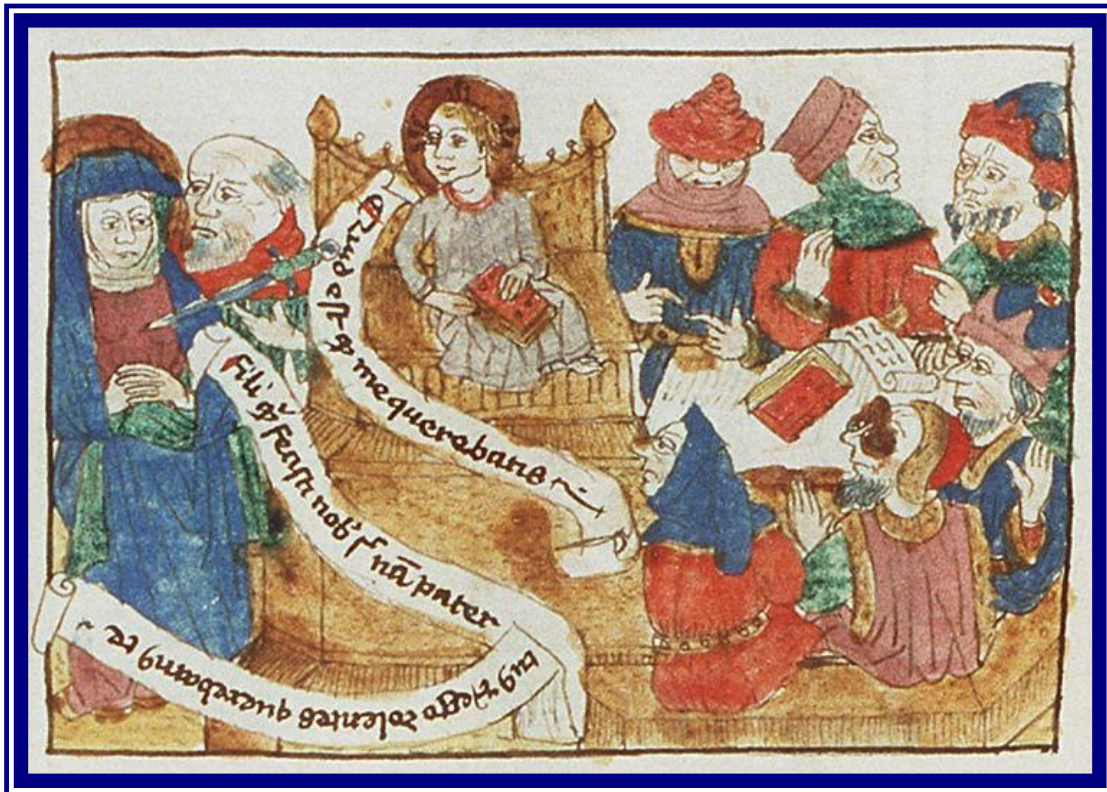 Quid est ꝙ me querebatis
Fili ꝙ fecisti nob' sic nā pater
tuꝰ et ego dolentes querebamꝰ te